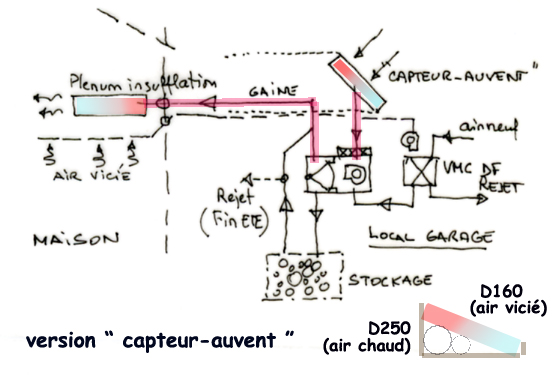 Plenum insufflation
GAINE
CAPTEUR-AUVENT"
air neuf
AIR VICIÉ
VMC DF
REJET
Rejet
(Fin ETE)
MAISON
LOCAL GARAGE
STOCKAGE
D160
(air vicié)
D250
(air chaud)
version " capteur-auvent "